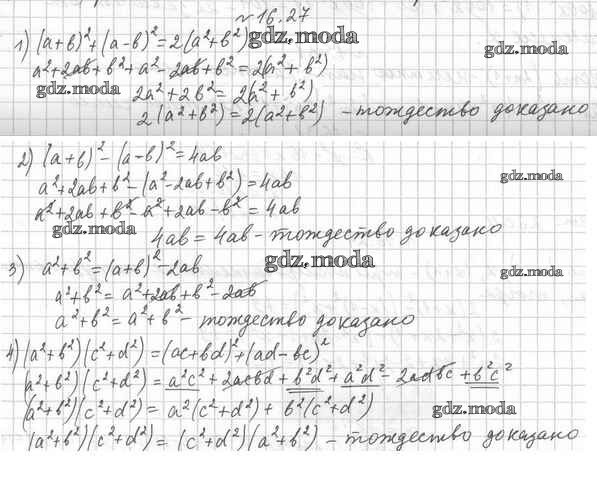 № 16.27
1) (a+b)²+(a-b)²=2(a²+b²) gdz.moda
gdz.moda
a²+2ab+b²+a²-2ab+b²=2(a²+b²)
gdz.moda 2a²+2b²=2(a²+b²)
2(a²+b²)=2(a²+b²) - тождество доказано
2) (a+b)²-(a-b)²=4ab
gdz.moda
a²+2ab+b²-(a²-2ab+b²)=4ab
a²+2ab+b²-a²+2ab-b²=4ab
gdz.moda
4ab=4ab - тождество доказано
3) a²+b²=(a+b)²-2ab gdz.moda
gdz.moda
a²+b²=a²+2ab+b²-2ab
a²+b²=a²+b² - тождество доказано
4) (a²+b²)(c²+d²)=(ac+bd)²+(ad-bc)²
(a²+b²)(c²+d²)=a²c²+2acbd+b²d²+a²d²-2adbc+b²c²
(a²+b²)(c²+d²)=a²(c²+d²)+b²(c²+d²) gdz.moda
(a²+b²)(c²+d²)=(c²+d²)(a²+b²) - тождество доказано